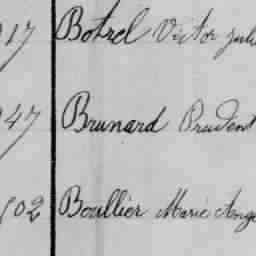 17 Botrel Victor Juli
47 Brunard Prudent
502 Boullier Marie Ange